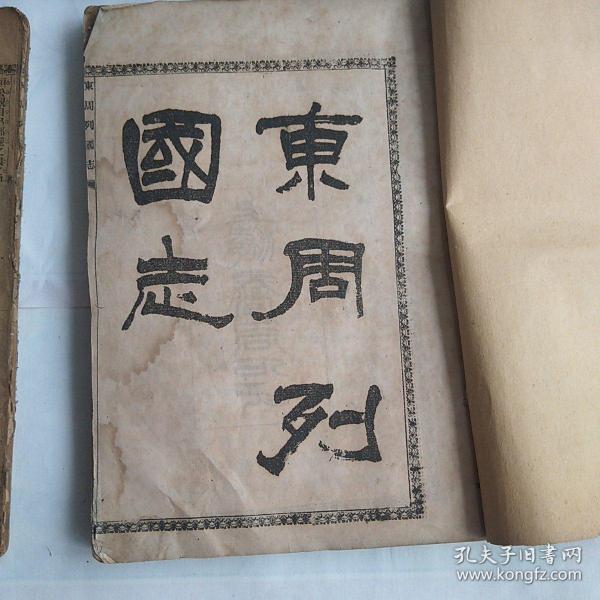 東周列
國志
東周列國志
孔夫子旧書网
www.kongfz.com